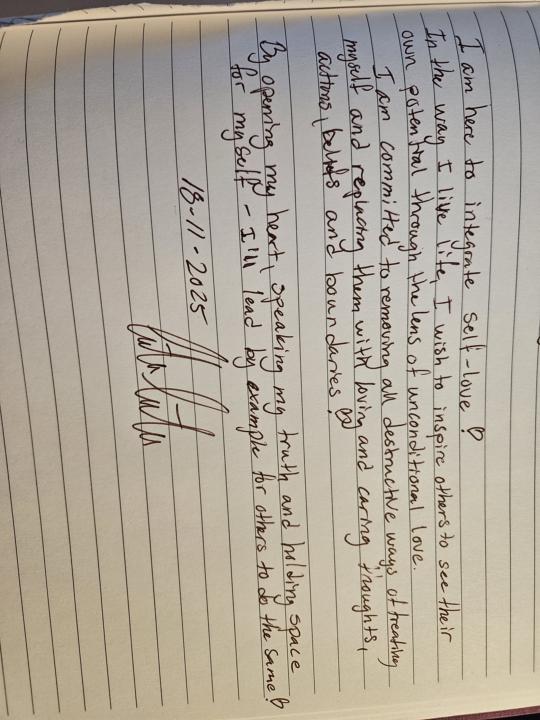 I am here to integrate self-love ♡
In the way I live life, I wish to inspire others to see their
own potential through the lens of unconditional love.
I am committed to removing all destructive ways of treating
myself and replacing them with loving and caring thoughts,
actions, beliefs and boundaries ♡
By opening my heart, speaking my truth and holding space
for myself - I'll lead by example for others to do the same ♡
18-11-2025